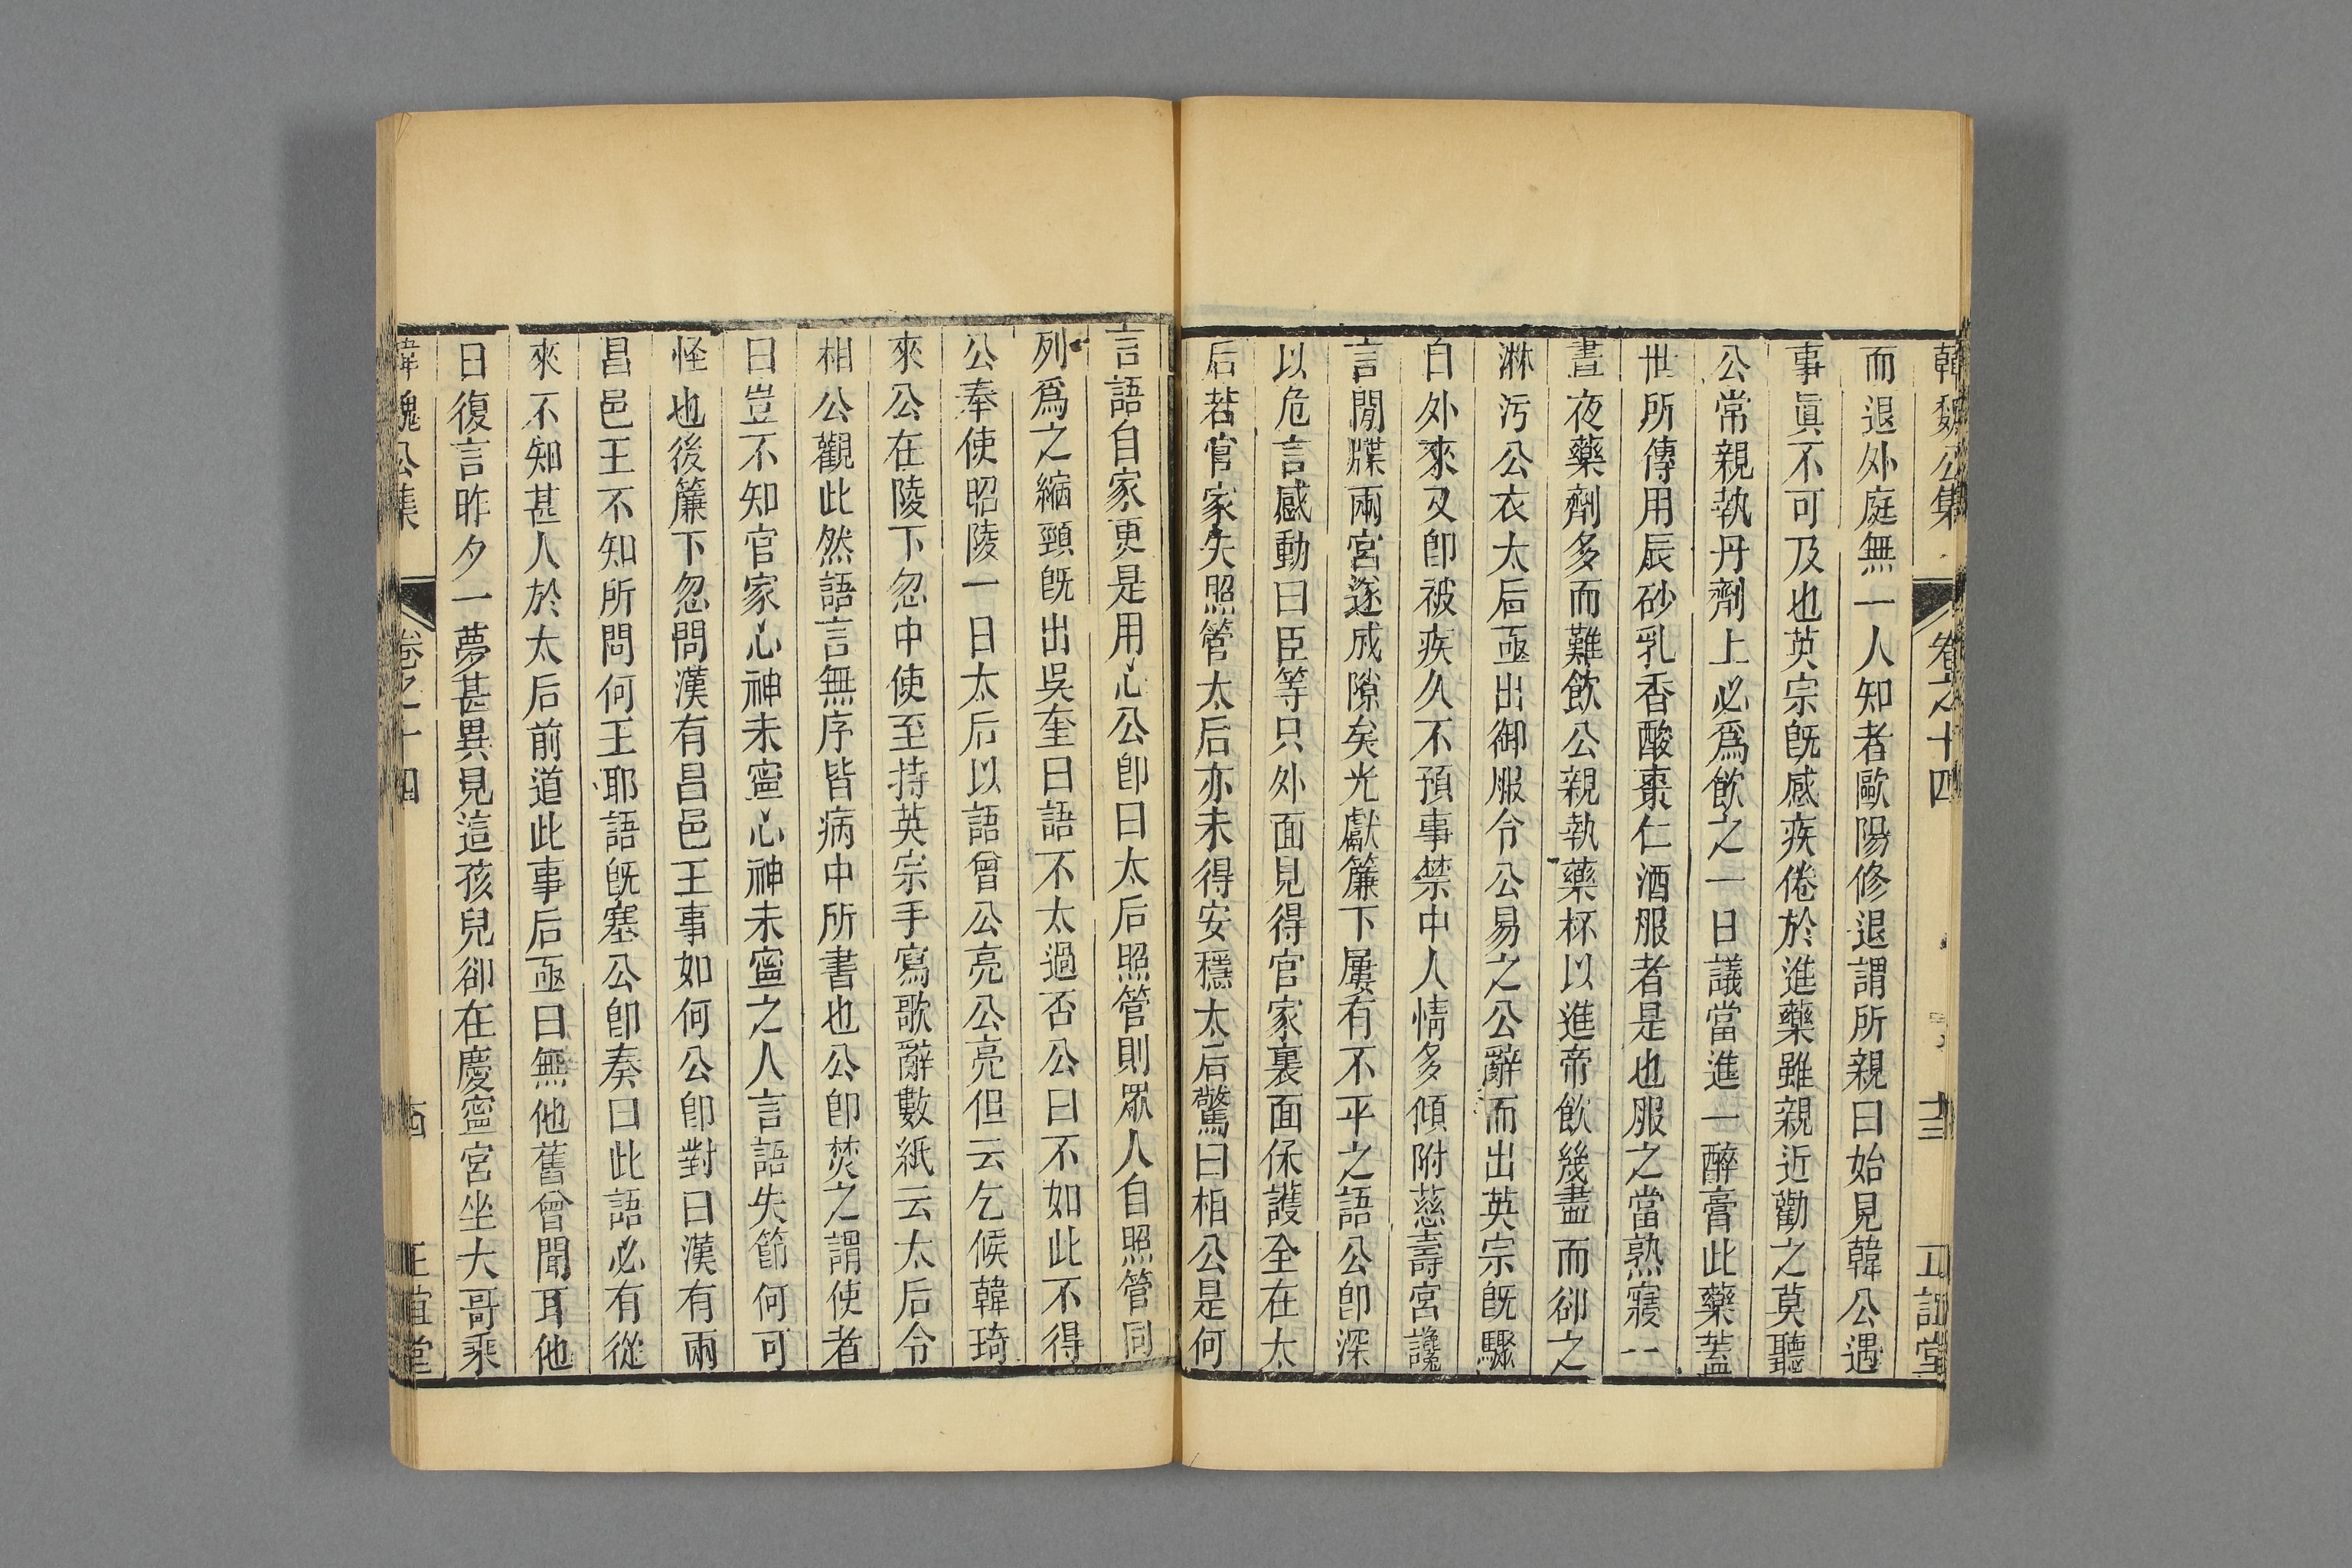 韓魏公集 卷之十四 十三 正誼堂
而退外庭無一人知者歐陽修退謂所親曰始見韓公遇
事眞不可及也英宗旣感疾倦於進藥雖親近勸之莫聽
公常親執丹劑上必爲飲之一日議當進一醉膏此藥蓋
世所傳用辰砂乳香酸棗仁酒服者是也服之當熟寢一
晝夜藥劑多而難飲公親執藥杯以進帝飲幾盡而卻之
淋污公衣太后亟出御服令公易之公辭而出英宗旣驟
自外來又卽被疾久不預事禁中人情多傾附慈壽宮讒
言閒牒兩宮遂成隙矣光獻簾下屢有不平之語公卽深
以危言感動曰臣等只外面見得官家裏面保護全在太
后若官家失照管太后亦未得安穩太后驚曰相公是何
言語自家更是用心公卽曰太后照管則眾人自照管同
列爲之縮頸旣出吳奎曰語不太過否公曰不如此不得
公奉使昭陵一日太后以語曾公亮公亮但云乞候韓琦
來公在陵下忽中使至持英宗手寫歌辭數紙云太后令
相公觀此然語言無序皆病中所書也公卽焚之謂使者
曰豈不知官家心神未寧心神未寧之人言語失節何可
怪也後簾下忽問漢有昌邑王事如何公卽對曰漢有兩
昌邑王不知所問何王耶語旣塞公卽奏曰此語必有從
來不知甚人於太后前道此事后亟曰無他舊曾聞耳他
日復言昨夕一夢甚異見這孩兒卻在慶寧宮坐大哥乘
魏公集 卷之十四